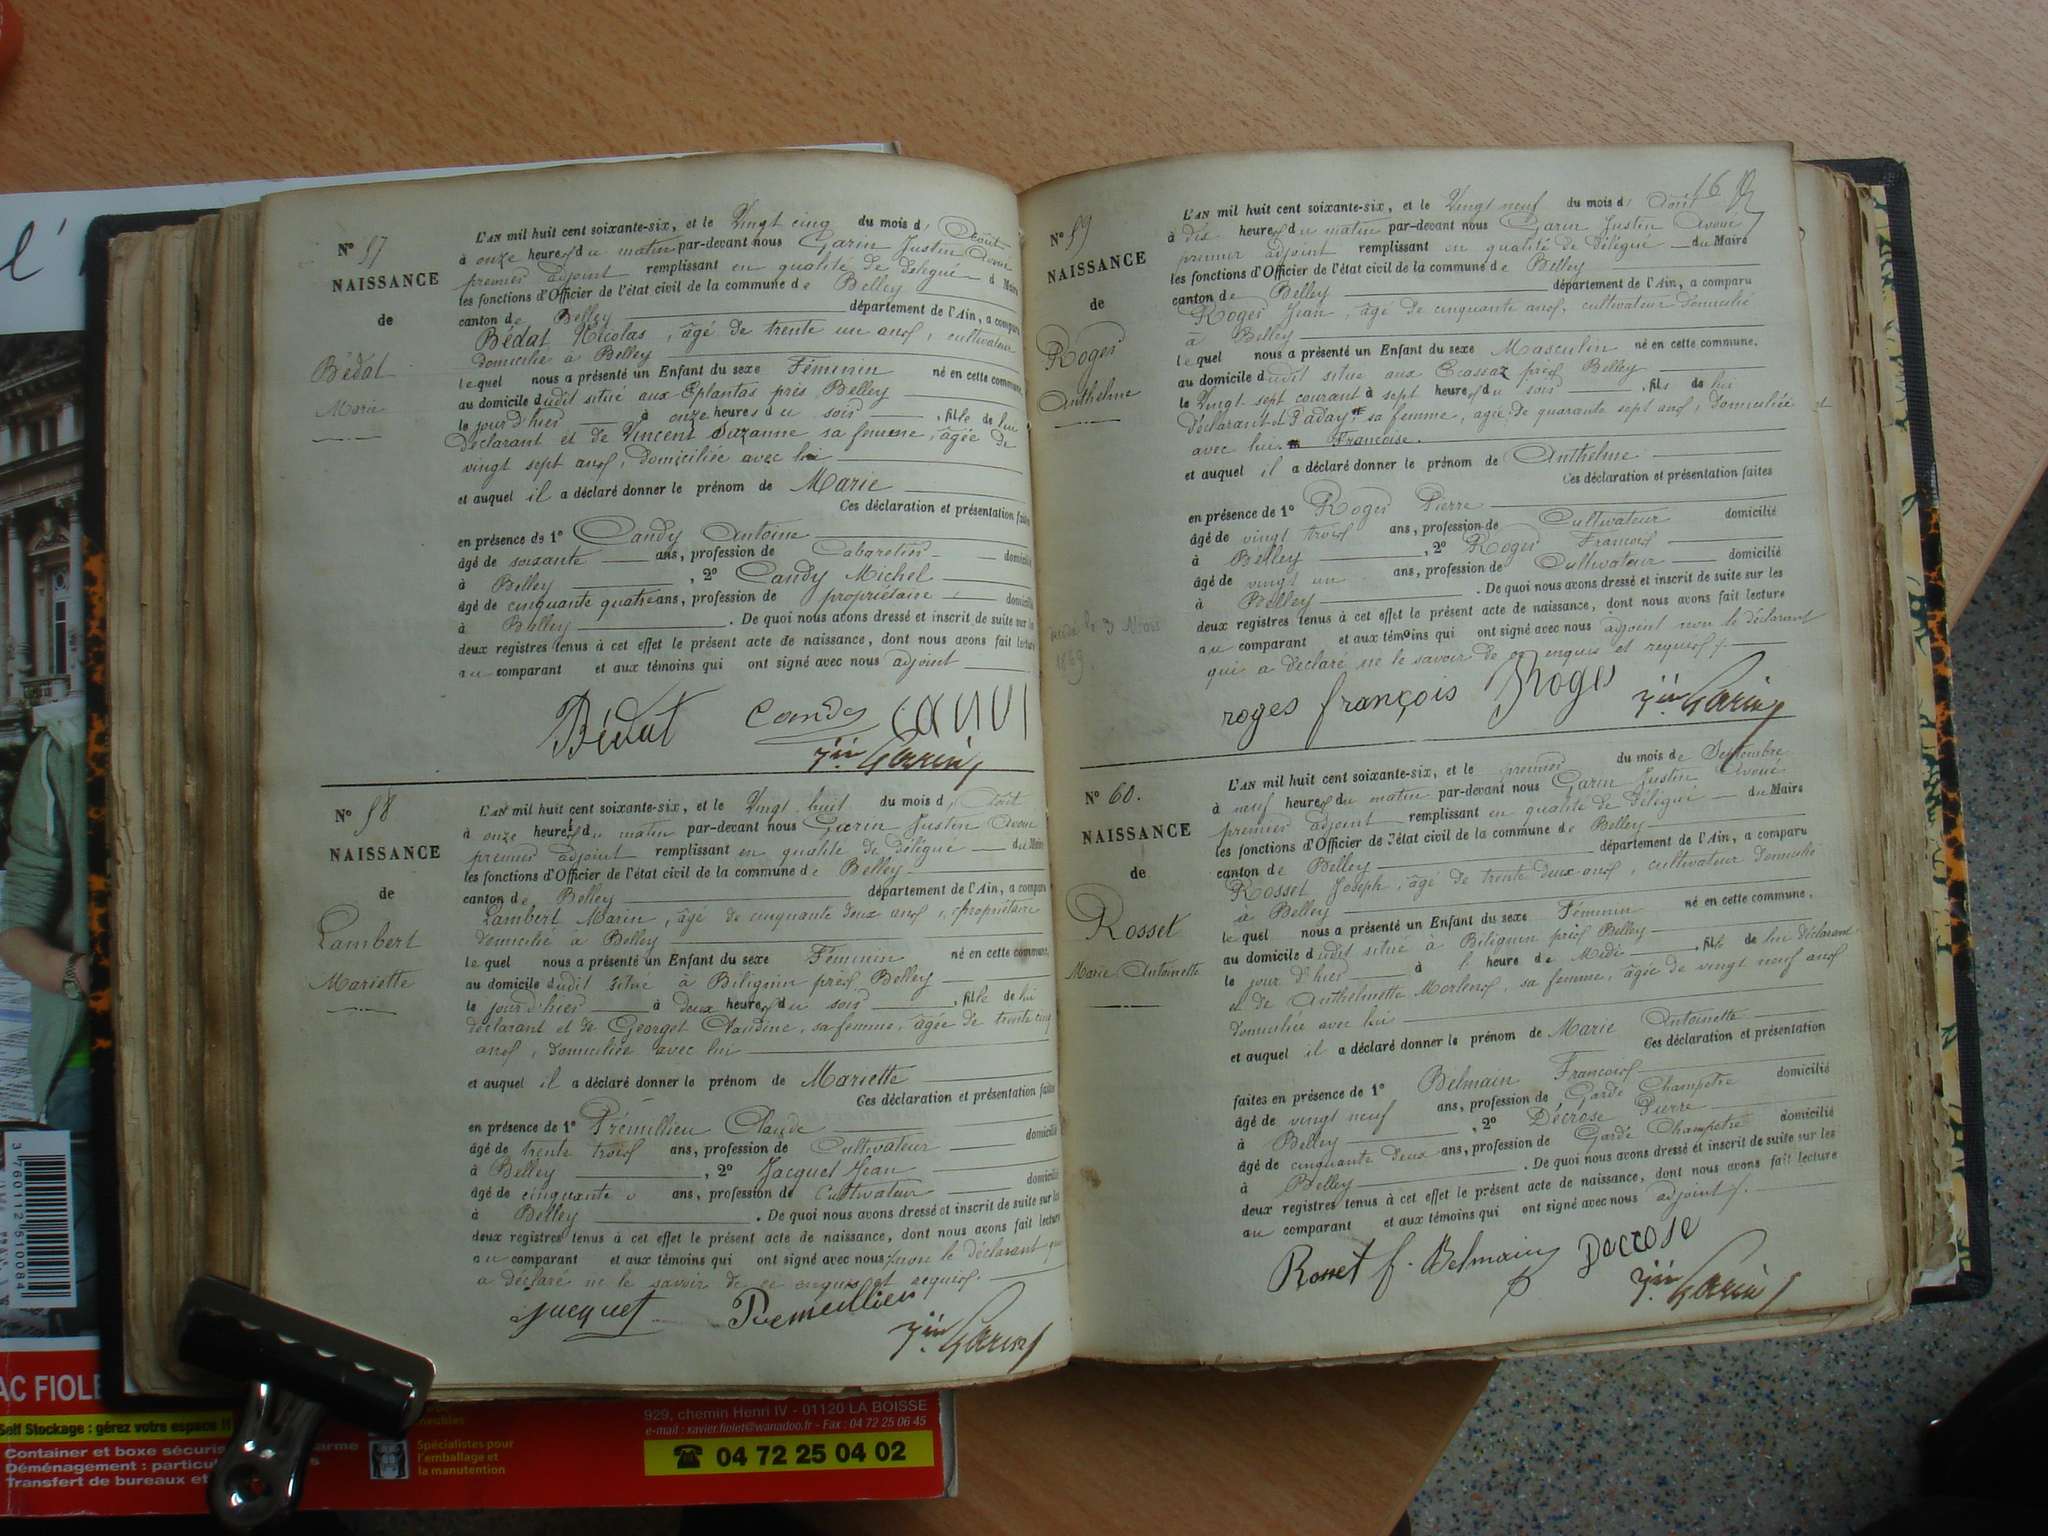 N° 57
NAISSANCE
de
Bédat
Marie
L'AN mil huit cent soixante-six, et le Vingt cinq du mois d'Août
à onze heures du matin par-devant nous Garin Justin Avoué
premier adjoint remplissant en qualité de délégué d Maire
les fonctions d'Officier de l'état civil de la commune de Belley
canton de Belley département de l'Ain, a comparu
Bédat Nicolas, âgé de trente un ans, cultivateur
domicilié à Belley
lequel nous a présenté un Enfant du sexe Féminin né en cette commune,
au domicile dudit situé aux Eplantas près Belley
le jour d'hier à onze heures du soir, fille de lui
déclarant et de Vincent Suzanne sa femme, âgée de
vingt sept ans, domiciliée avec lui
et auquel il a déclaré donner le prénom de Marie
Ces déclaration et présentation faites
en présence de 1° Candy Antoine
âgé de soixante ans, profession de Cabaretier domicilié
à Belley, 2° Candy Michel
âgé de cinquante quatre ans, profession de propriétaire domicilié
à Belley. De quoi nous avons dressé et inscrit de suite sur les
deux registres tenus à cet effet le présent acte de naissance, dont nous avons fait lecture
au comparant et aux témoins qui ont signé avec nous adjoint
Bédat Candy
Jin Garin
N° 58
NAISSANCE
de
Lambert
Mariette
L'AN mil huit cent soixante-six, et le Vingt huit du mois d'Août
à onze heures du matin par-devant nous Garin Justin Avoué
premier adjoint remplissant en qualité de délégué du Maire
les fonctions d'Officier de l'état civil de la commune de Belley
canton de Belley département de l'Ain, a comparu
Lambert Marin, âgé de cinquante deux ans, propriétaire
domicilié à Belley
lequel nous a présenté un Enfant du sexe Féminin né en cette commune,
au domicile dudit situé à Bilignin près Belley
le jour d'hier à deux heures du soir, fille de lui
déclarant et de Georget Claudine, sa femme, âgée de trente cinq
ans, domiciliée avec lui
et auquel il a déclaré donner le prénom de Mariette
Ces déclaration et présentation faites
en présence de 1° Prémillieu Claude
âgé de trente trois ans, profession de Cultivateur domicilié
à Belley, 2° Jacquet Jean
âgé de cinquante ans, profession de Cultivateur domicilié
à Belley. De quoi nous avons dressé et inscrit de suite sur les
deux registres tenus à cet effet le présent acte de naissance, dont nous avons fait lecture
au comparant et aux témoins qui ont signé avec nous non le déclarant qui
a déclaré ne le savoir de ce enquis et requis.
jacquet Premillieu
Jin Garin
16
N° 59
NAISSANCE
de
Roger
Anthelme
décédé le 3 Mars
1869
L'AN mil huit cent soixante-six, et le Vingt neuf du mois d'Août
à dix heures du matin par-devant nous Garin Justin Avoué
premier adjoint remplissant en qualité de délégué du Maire
les fonctions d'Officier de l'état civil de la commune de Belley
canton de Belley département de l'Ain, a comparu
Roger Jean, âgé de cinquante ans, cultivateur domicilié
à Belley
lequel nous a présenté un Enfant du sexe Masculin né en cette commune,
au domicile dudit situé aux Ecassaz près Belley
le Vingt sept courant à sept heures du soir, fils de lui
déclarant et Paday sa femme, agée de quarante sept ans, domiciliée
avec lui. Françoise.
et auquel il a déclaré donner le prénom de Anthelme
Ces déclaration et présentation faites
en présence de 1° Roger Pierre
âgé de vingt trois ans, profession de Cultivateur domicilié
à Belley, 2° Roger François
âgé de vingt un ans, profession de Cultivateur domicilié
à Belley. De quoi nous avons dressé et inscrit de suite sur les
deux registres tenus à cet effet le présent acte de naissance, dont nous avons fait lecture
au comparant et aux témoins qui ont signé avec nous adjoint non le déclarant
qui a déclaré ne le savoir de ce enquis et requis
roges françois Roges Jin Garin
N° 60.
NAISSANCE
de
Rosset
Marie Antoinette
L'AN mil huit cent soixante-six, et le premier du mois de Septembre
à neuf heures du matin par-devant nous Garin Justin Avoué
premier adjoint remplissant en qualité de délégué du Maire
les fonctions d'Officier de l'état civil de la commune de Belley
canton de Belley département de l'Ain, a comparu
Rosset Joseph, âgé de trente deux ans, cultivateur domicilié
à Belley
lequel nous a présenté un Enfant du sexe Féminin né en cette commune,
au domicile dudit situé à Bilignin près Belley
le jour d'hier à l'heure de Midi, fille de lui déclarant
et de Anthelmette Mortenod, sa femme, âgée de vingt neuf ans
domiciliée avec lui
et auquel il a déclaré donner le prénom de Marie Antoinette
Ces déclaration et présentation
faites en présence de 1° Belmain François
âgé de vingt neuf ans, profession de Garde Champetre domicilié
à Belley, 2° Décrose Pierre
âgé de cinquante deux ans, profession de Garde Champetre domicilié
à Belley. De quoi nous avons dressé et inscrit de suite sur les
deux registres tenus à cet effet le présent acte de naissance, dont nous avons fait lecture
au comparant et aux témoins qui ont signé avec nous adjoint
Rosset f. Belmain Decrose
Jin Garin
3 760112 510084
AC FIOLE
Self Stockage : gérez votre espace !!
Container et boxe sécuris
Déménagement : particul
Transfert de bureaux et
Spécialistes pour
l'emballage et
la manutention
929, chemin Henri IV - 01120 LA BOISSE
e-mail : xavier.fiolet@wanadoo.fr - Fax : 04 72 25 06 45
04 72 25 04 02